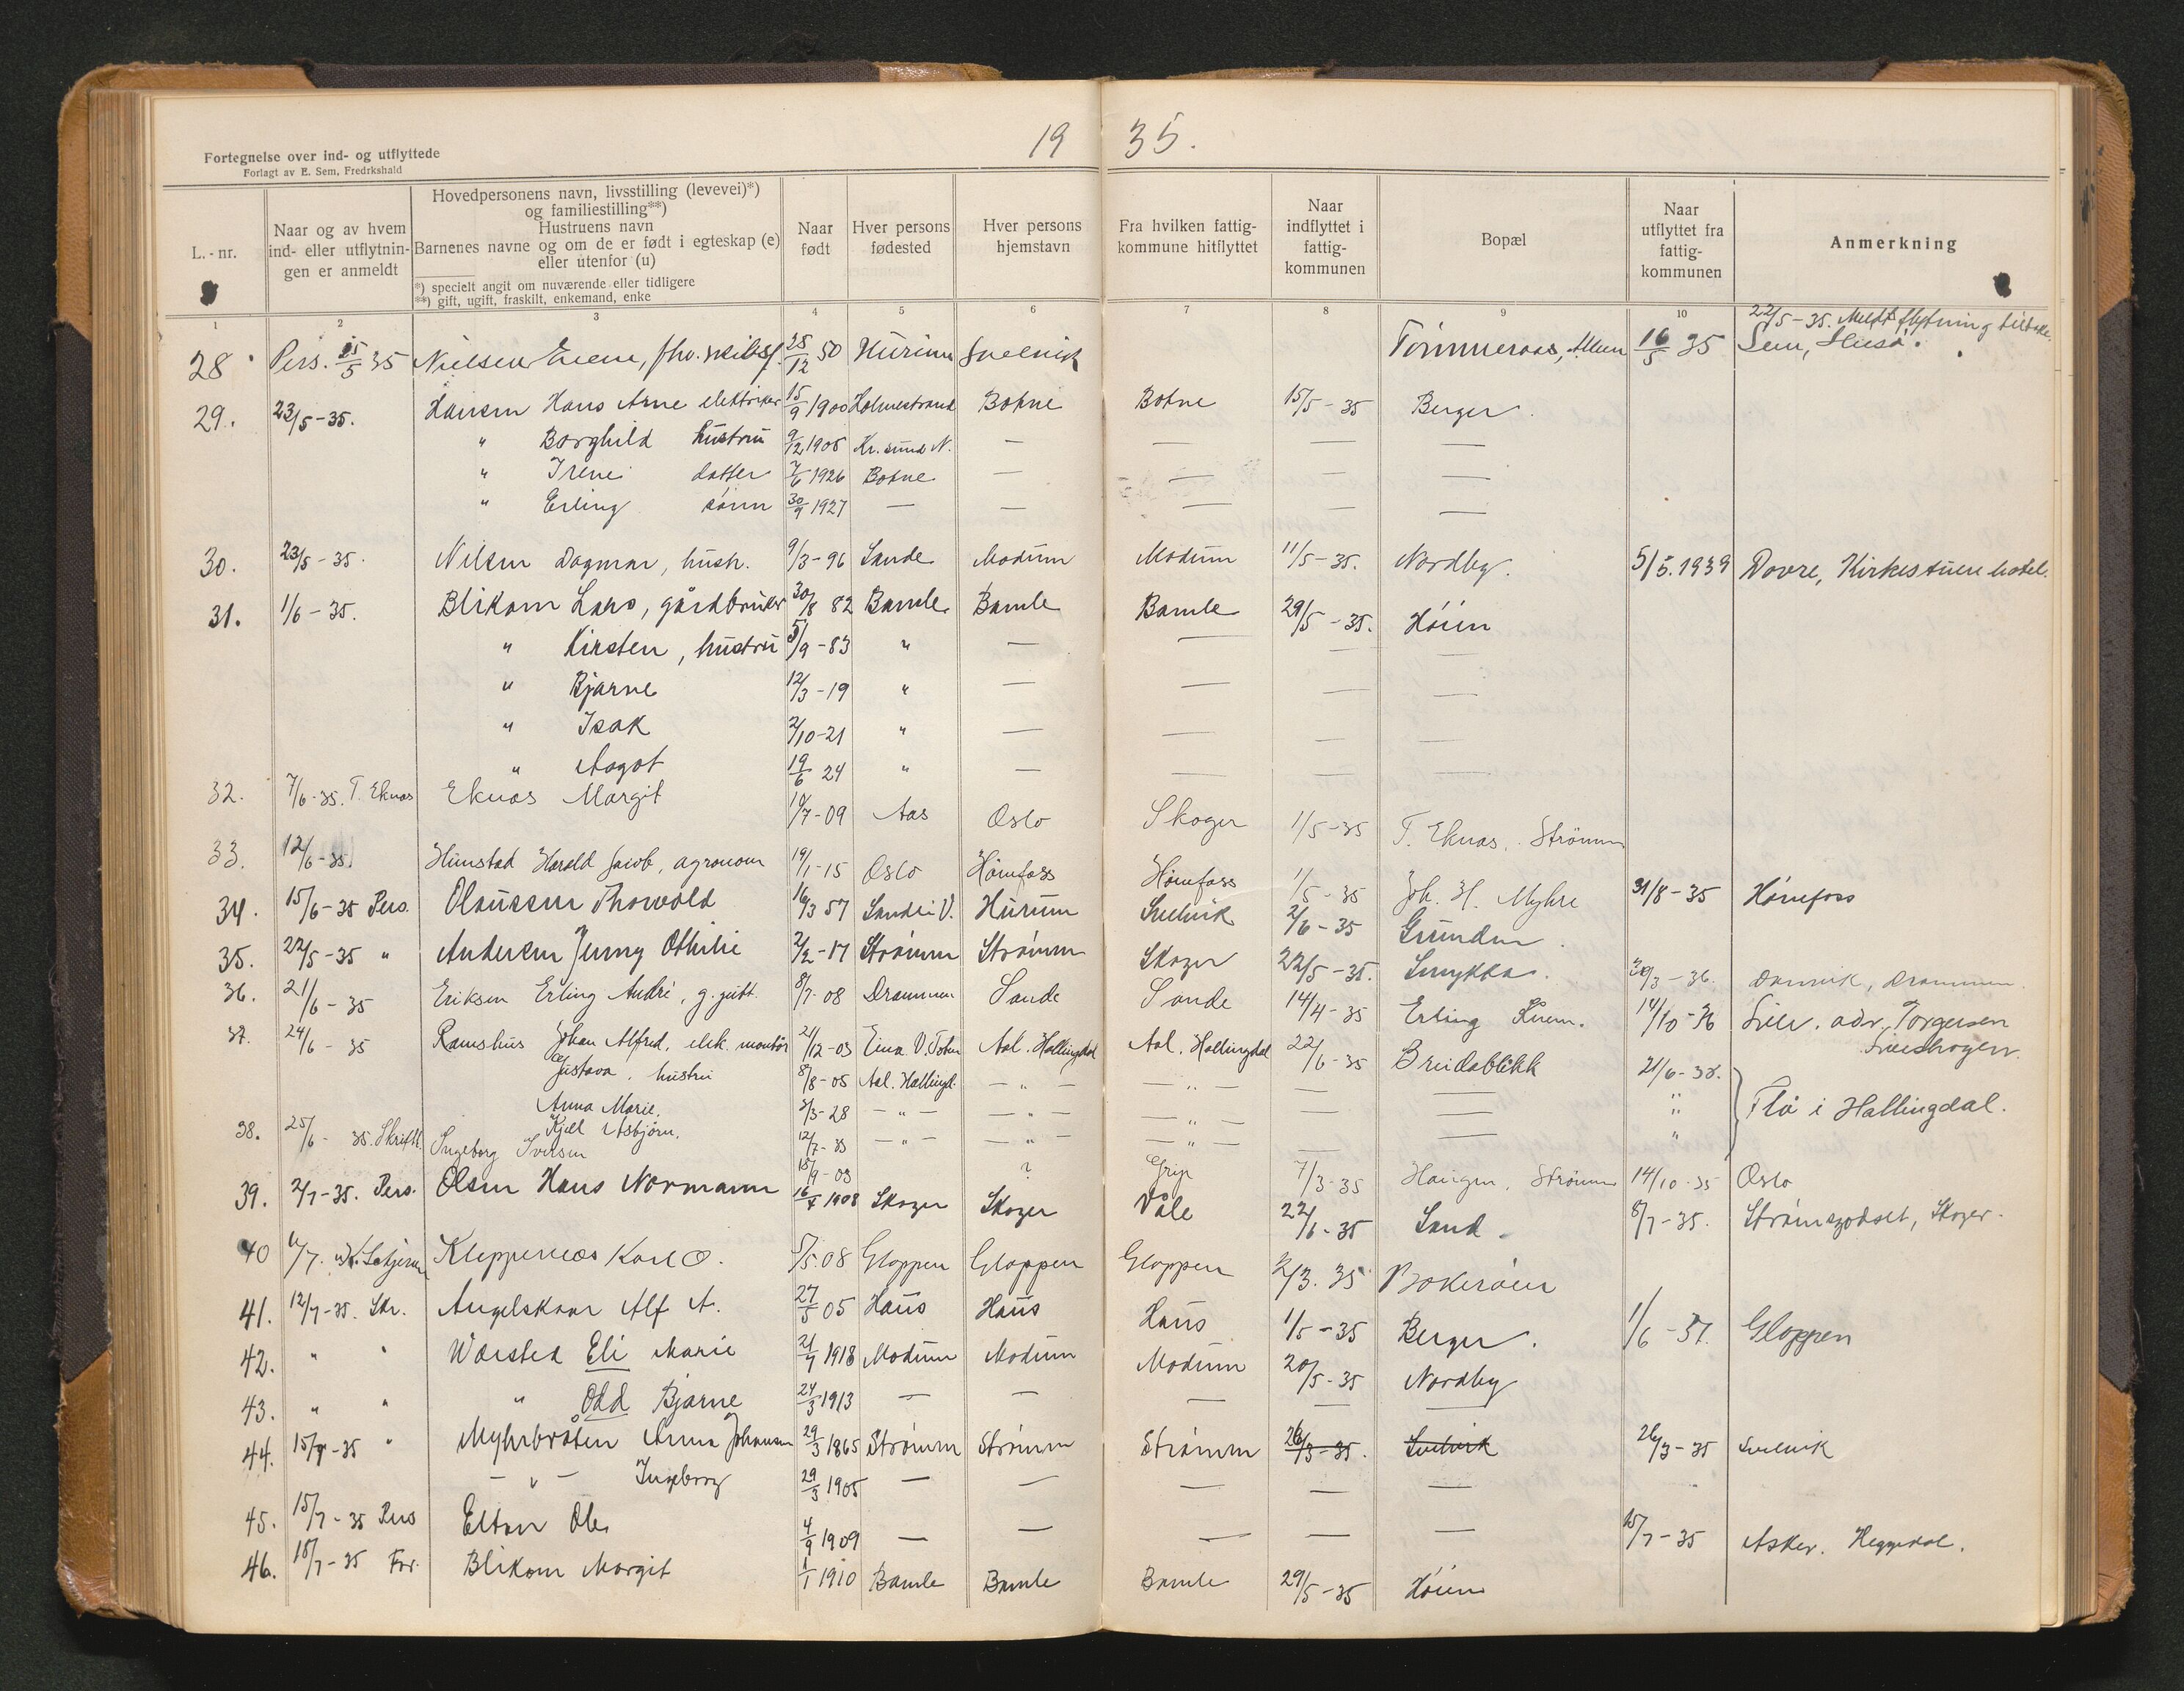 19 35.
Fortegnelse over ind- og utflyttede
Forlagt av E. Sem, Fredrkshald
L.-nr.
Naar og av hvem ind- eller utflytningen er anmeldt
Hovedpersonens navn, livsstilling (levevei)*) og familiestilling**)
Hustruens navn
Barnenes navne og om de er født i egteskap (e) eller utenfor (u)
*) specielt angit om nuværende eller tidligere
**) gift, ugift, fraskilt, enkemand, enke
Naar født
Hver persons fødested
Hver persons hjemstavn
Fra hvilken fattigkommune hitflyttet
Naar indflyttet i fattigkommunen
Bopæl
Naar utflyttet fra fattigkommunen
Anmerkning
1 2 3 4 5 6 7 8 9 10
22/5-35. Meldt flytning tilbake.
28 Pers. 25/5 35 Nielsen, fhv. skibsf. 25/12 50 Hurum Svelvik Tømmeraas, Mun 16/5 35 Sem,
29. 23/5-35. Hansen Hans Arne elektriker 15/9 1900 Holmestrand Botne Botne 15/5-35 Berger.
" Borghild hustru 9/12 1905 Kr.sund N. — — — —
" Irene datter 7/6 1926 Botne — — — —
" Erling sønn 30/9 1927 — — — — —
30. 23/5-35. Nilsen Dagmar, hustr. 9/3-96 Sande Modum Modum 11/5-35. Nordby. 5/5.1939 Dovre, Kirkestuen hotel.
31. 1/6-35. Blikom Lars, gårdbruker 30/8 82 Bamle Bamle Bamle 29/5-35. Høien
" Kirsten, hustru 5/9-83 " — — — —
" Bjarne 12/3-19 " — — — —
" Isak 2/10-21 " — — — —
" Aagot 19/6 24 " — — — —
32. 7/6-35. T. Eknes Eknes Margit 10/7-09 Aas Oslo Skoger 1/5-35 T. Eknes, Strømm
33. 12/6-35. Himstad Harald Jacob, agronom 19/1-15 Oslo Hønefoss Hønefoss 1/5-35 Joh. H. Myhre 31/8-35 Hønefoss
34. 15/6-35 Pers. Olaussen Thorvald 16/3 57 Sande i V. Hurum Svelvik 2/6-35 Grunden.
35. 22/5-35 " Andersen Jenny Othilie 2/2-17 Strømm Strømm Skoger 22/5-35. Smykka. 30/3-36. Danvik, Drammen.
36. 21/6-35 Eriksen Erling André, g.gutt. 8/7-08 Drammen Sande Sande 14/4-35 Erling Knem. 14/10-36 adr. Torgersen
37. 24/6-35 Ramshus Johan Alfred, elek. montør 21/12-03 Eina V.Toten Aal. Hallingdal Aal. Hallingdal 22/6-35 Breidablikk 21/6-38.
Gustava, hustru 8/8-05 Aal. Hallingd. — " — — " — — — " Flå i Hallingdal.
Anna Marie. 3/3-28 — " — — " — — " — — "
Kjell Asbjørn. 12/7-33 — " — — " — — " — —
38. 25/6-35. Skriftl. Ingeborg Iversen 15/9-03 ? Grip 7/3-35 Haugen, Strømm 14/10-35 Oslo
39. 2/7-35. Pers. Olsen Hans Normann 16/4 1908 Skoger Skoger Våle 22/6-35 Sand. 8/7-35. Strømsgodset, Skoger.
40 6/7. Kleppenes Karl O. 5/5.08 Gloppen Gloppen Gloppen 2/3.35 Bokerøen
41. 12/7-35. Skr. Angelskaar Alf A. 27/5 05 Haus Haus Haus 1/5-35 Berger. 1/6-37. Gloppen
42. " " Waersted Eli Marie 21/7 1918 Modum Modum Modum 20/5-35 Nordby
43. " " " Odd Bjarne 24/3 1913 — — — — —
44. 15/7-35 " Myhrbråten Anna Johansen 29/3 1865 Strømm Strømm Strømm 26/3-35. Svelvik 26/3-35 Svelvik
— " — Ingeborg 29/3 1905 — — — — — "
45. 15/7-35 Pers Elton Ole 4/9 1909 — — — — — 15/7-35 Asker. Heggedal.
46. 18/7-35 For. Blikom Margit 1/1 1910 Bamle Bamle Bamle 29/5-35 Høien